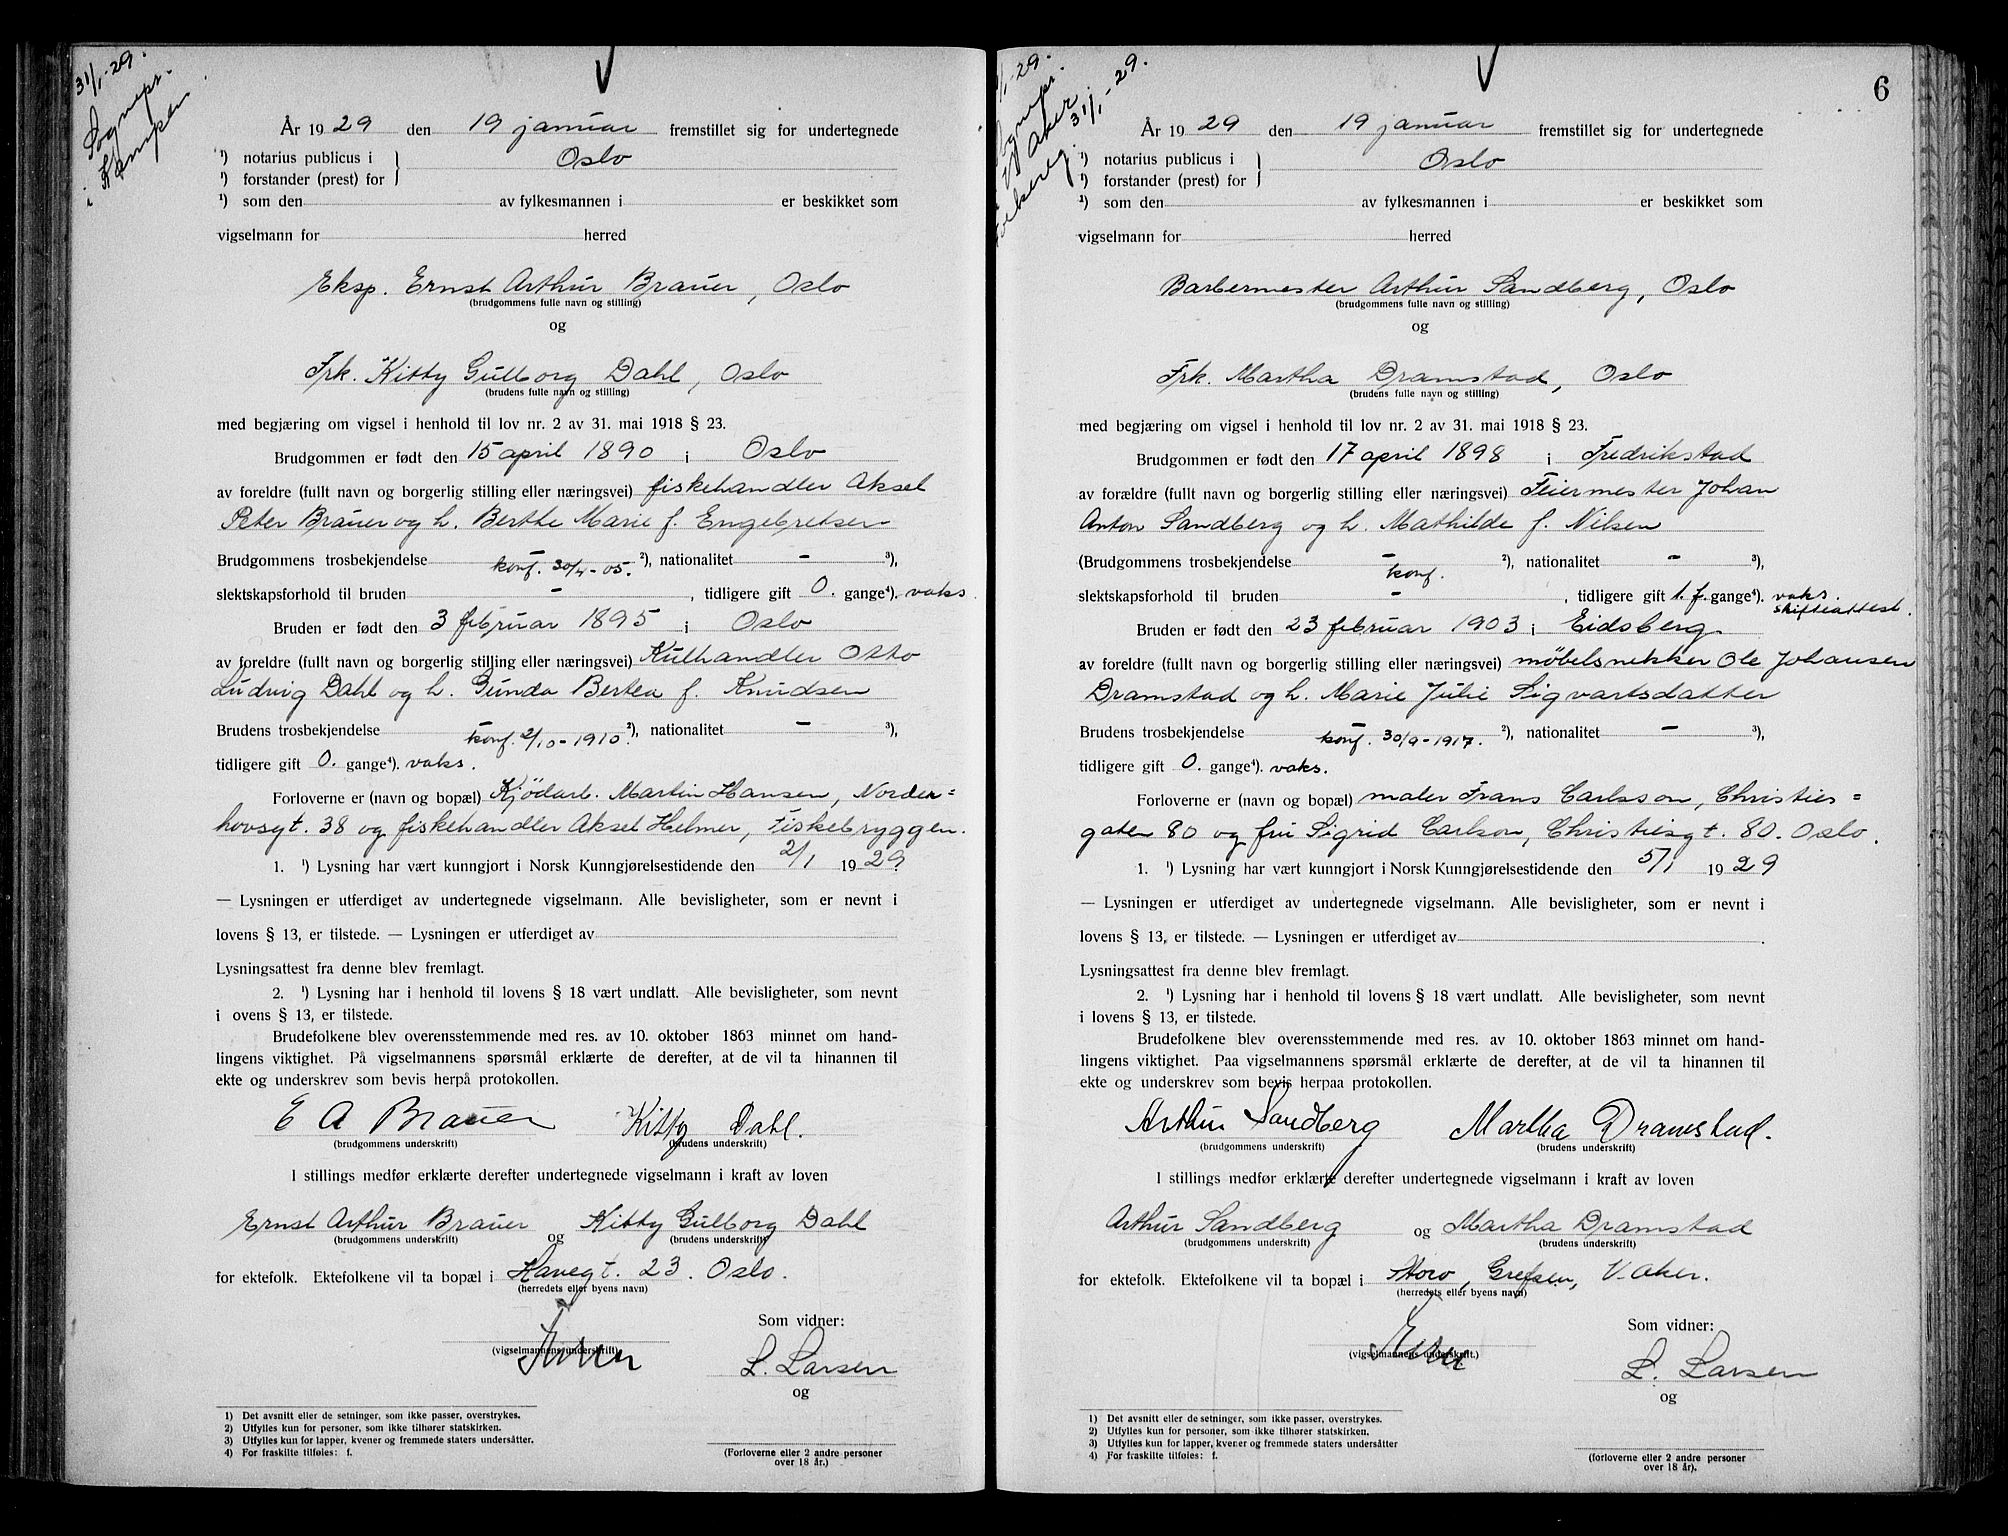 31/1-29.
Sognepr.
i Kampen
År 1929 den 19 januar fremstillet sig for undertegnede
¹) notarius publicus i } Oslo
¹) forstander (prest) for
¹) som den av fylkesmannen i er beskikket som
vigselmann for herred
Eksp. Ernst Arthur Brauer, Oslo
(brudgommens fulle navn og stilling)
og
Frk. Kitty Gulborg Dahl, Oslo
(brudens fulle navn og stilling)
med begjæring om vigsel i henhold til lov nr. 2 av 31. mai 1918 § 23.
Brudgommen er født den 15 april 1890 i Oslo
av foreldre (fullt navn og borgerlig stilling eller næringsvei) fiskehandler Aksel
Peter Brauer og h. Berthe Marie f. Engebretsen
Brudgommens trosbekjendelse – konf. 30/4-05. ²), nationalitet – ³),
slektskapsforhold til bruden – , tidligere gift 0. gange⁴). vaks.
Bruden er født den 3 februar 1895 i Oslo
av foreldre (fullt navn og borgerlig stilling eller næringsvei) Kulhandler Otto
Ludvig Dahl og h. Gunda Bertea f. Knudsen
Brudens trosbekjendelse – konf. 2/10-1910. ²), nationalitet – ³),
tidligere gift 0. gange⁴). vaks.
Forloverne er (navn og bopæl) Kjödarb. Martin Hansen, Norder=
hovsgt. 38 og fiskehandler Aksel Helmer, Fiskebryggen.
1. ¹) Lysning har vært kunngjort i Norsk Kunngjørelsestidende den 2/1 1929
— Lysningen er utferdiget av undertegnede vigselmann. Alle bevisligheter, som er nevnt i
lovens § 13, er tilstede. — Lysningen er utferdiget av
Lysningsattest fra denne blev fremlagt.
2. ¹) Lysning har i henhold til lovens § 18 vært undlatt. Alle bevisligheter, som nevnt
i ovens § 13, er tilstede.
Brudefolkene blev overensstemmende med res. av 10. oktober 1863 minnet om hand-
lingens viktighet. På vigselmannens spørsmål erklærte de derefter, at de vil ta hinannen til
ekte og underskrev som bevis herpå protokollen.
E A Brauer Kitty Dahl.
(brudgommens underskrift) (brudens underskrift)
I stillings medfør erklærte derefter undertegnede vigselmann i kraft av loven
Ernst Arthur Brauer og Kitty Gulborg Dahl
(brudgommens underskrift) (brudens underskrift)
for ektefolk. Ektefolkene vil ta bopæl i Havegt. 23. Oslo.
(herredets eller byens navn)
Som vidner:
(vigselmannens underskrift)
L. Larsen
og
1) Det avsnitt eller de setninger, som ikke passer, overstrykes.
2) Utfylles kun for personer, som ikke tilhører statskirken.
3) Utfylles kun for lapper, kvener og fremmede staters undersåtter.
4) For fraskilte tilføles: f.
(Forloverne eller 2 andre personer
over 18 år.)
6
V Aker 31/1-29.
År 1929 den 19 januar fremstillet sig for undertegnede
¹) notarius publicus i } Oslo
¹) forstander (prest) for
¹) som den av fylkesmannen i er beskikket som
vigselmann for herred
Barbermester Arthur Sandberg, Oslo
(brudgommens fulle navn og stilling)
og
Frk. Martha Dramstad, Oslo
(brudens fulle navn og stilling)
med begjæring om vigsel i henhold til lov nr. 2 av 31. mai 1918 § 23.
Brudgommen er født den 17 april 1898 i Fredrikstad
av forældre (fullt navn og borgerlig stilling eller næringsvei) Feiermester Johan
Anton Sandberg og h. Mathilde f. Nilsen
(Brudgommens trosbekjendelse – konf. ²), nationalitet – ³),
slektskapsforhold til bruden – , tidligere gift 1. f. gange⁴). vaks.
skifteattest.
Bruden er født den 23 februar 1903 i Eidsberg
av foreldre (fullt navn og borgerlig stilling eller næringsvei) møbelsnekker Ole Johansen
Dramstad og h. Marie Julie Sigvartsdatter
Brudens trosbekjendelse – konf. 30/9-1917. ²), nationalitet – ³),
tidligere gift 0. gange⁴). vaks.
Forloverne er (navn og bopæl) maler Frans Carlsson, Christies=
gaten 80 og fru Sigrid Carlson, Christiesgt. 80. Oslo.
1. ¹) Lysning har vært kunngjort i Norsk Kunngjørelsestidende den 5/1 1929
— Lysningen er utferdiget av undertegnede vigselmann. Alle bevisligheter, som er nevnt i
lovens § 13, er tilstede. — Lysningen er utferdiget av .
Lysningsattest fra denne blev fremlagt.
2. ¹) Lysning har i henhold til lovens § 18 vært undlatt. Alle bevisligheter, som nevnt
i lovens § 13, er tilstede.
Brudefolkene blev overensstemmende med res. av 10. oktober 1863 minnet om hand-
lingens viktighet. Paa vigselmannens spørsmål erklærte de derefter, at de vil ta hinannen til
ekte og underskrev som bevis herpaa protokollen.
Arthur Sandberg Martha Dramstad.
(brudgommens underskrift) (brudens underskrift)
I stillings medfør erklærte derefter undertegnede vigselmann i kraft av loven
Arthur Sandberg og Martha Dramstad
(brudgommens underskrift) (brudens underskrift)
for ektefolk. Ektefolkene vil ta bopæl i Storo, Grefsen, V. Aker.
(herredets eller byens navn)
Som vidner:
(vigselmannens underskrift.)
L. Larsen
og
1) Det avsnitt eller de setninger, som ikke passer, overstrykes.
2) Utfylles kun for personer, som ikke tilhører statskirken.
3) Utfylles kun for lapper, kvener og fremmede staters undersåtter
4) For fraskilte tilføles: f.
(forloverne eller 2 andre personer
over 18 år).